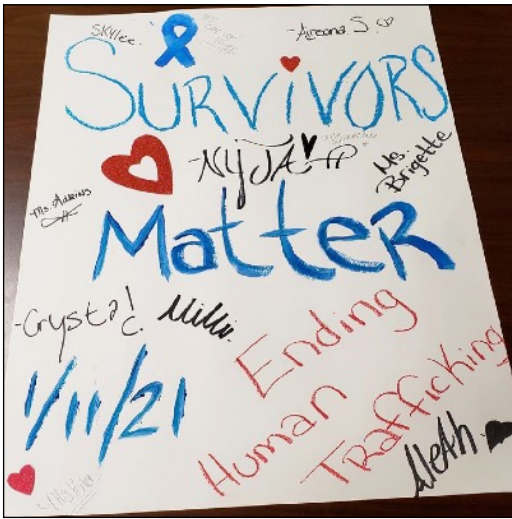 SKYlee.
-Aireona S.
SURVIVORS
-NYJA
Ms. Brigette
Ms. Adkins
MatteR
-Crystal C.
Milli.
1/11/21
Ending
Human
Trafficking